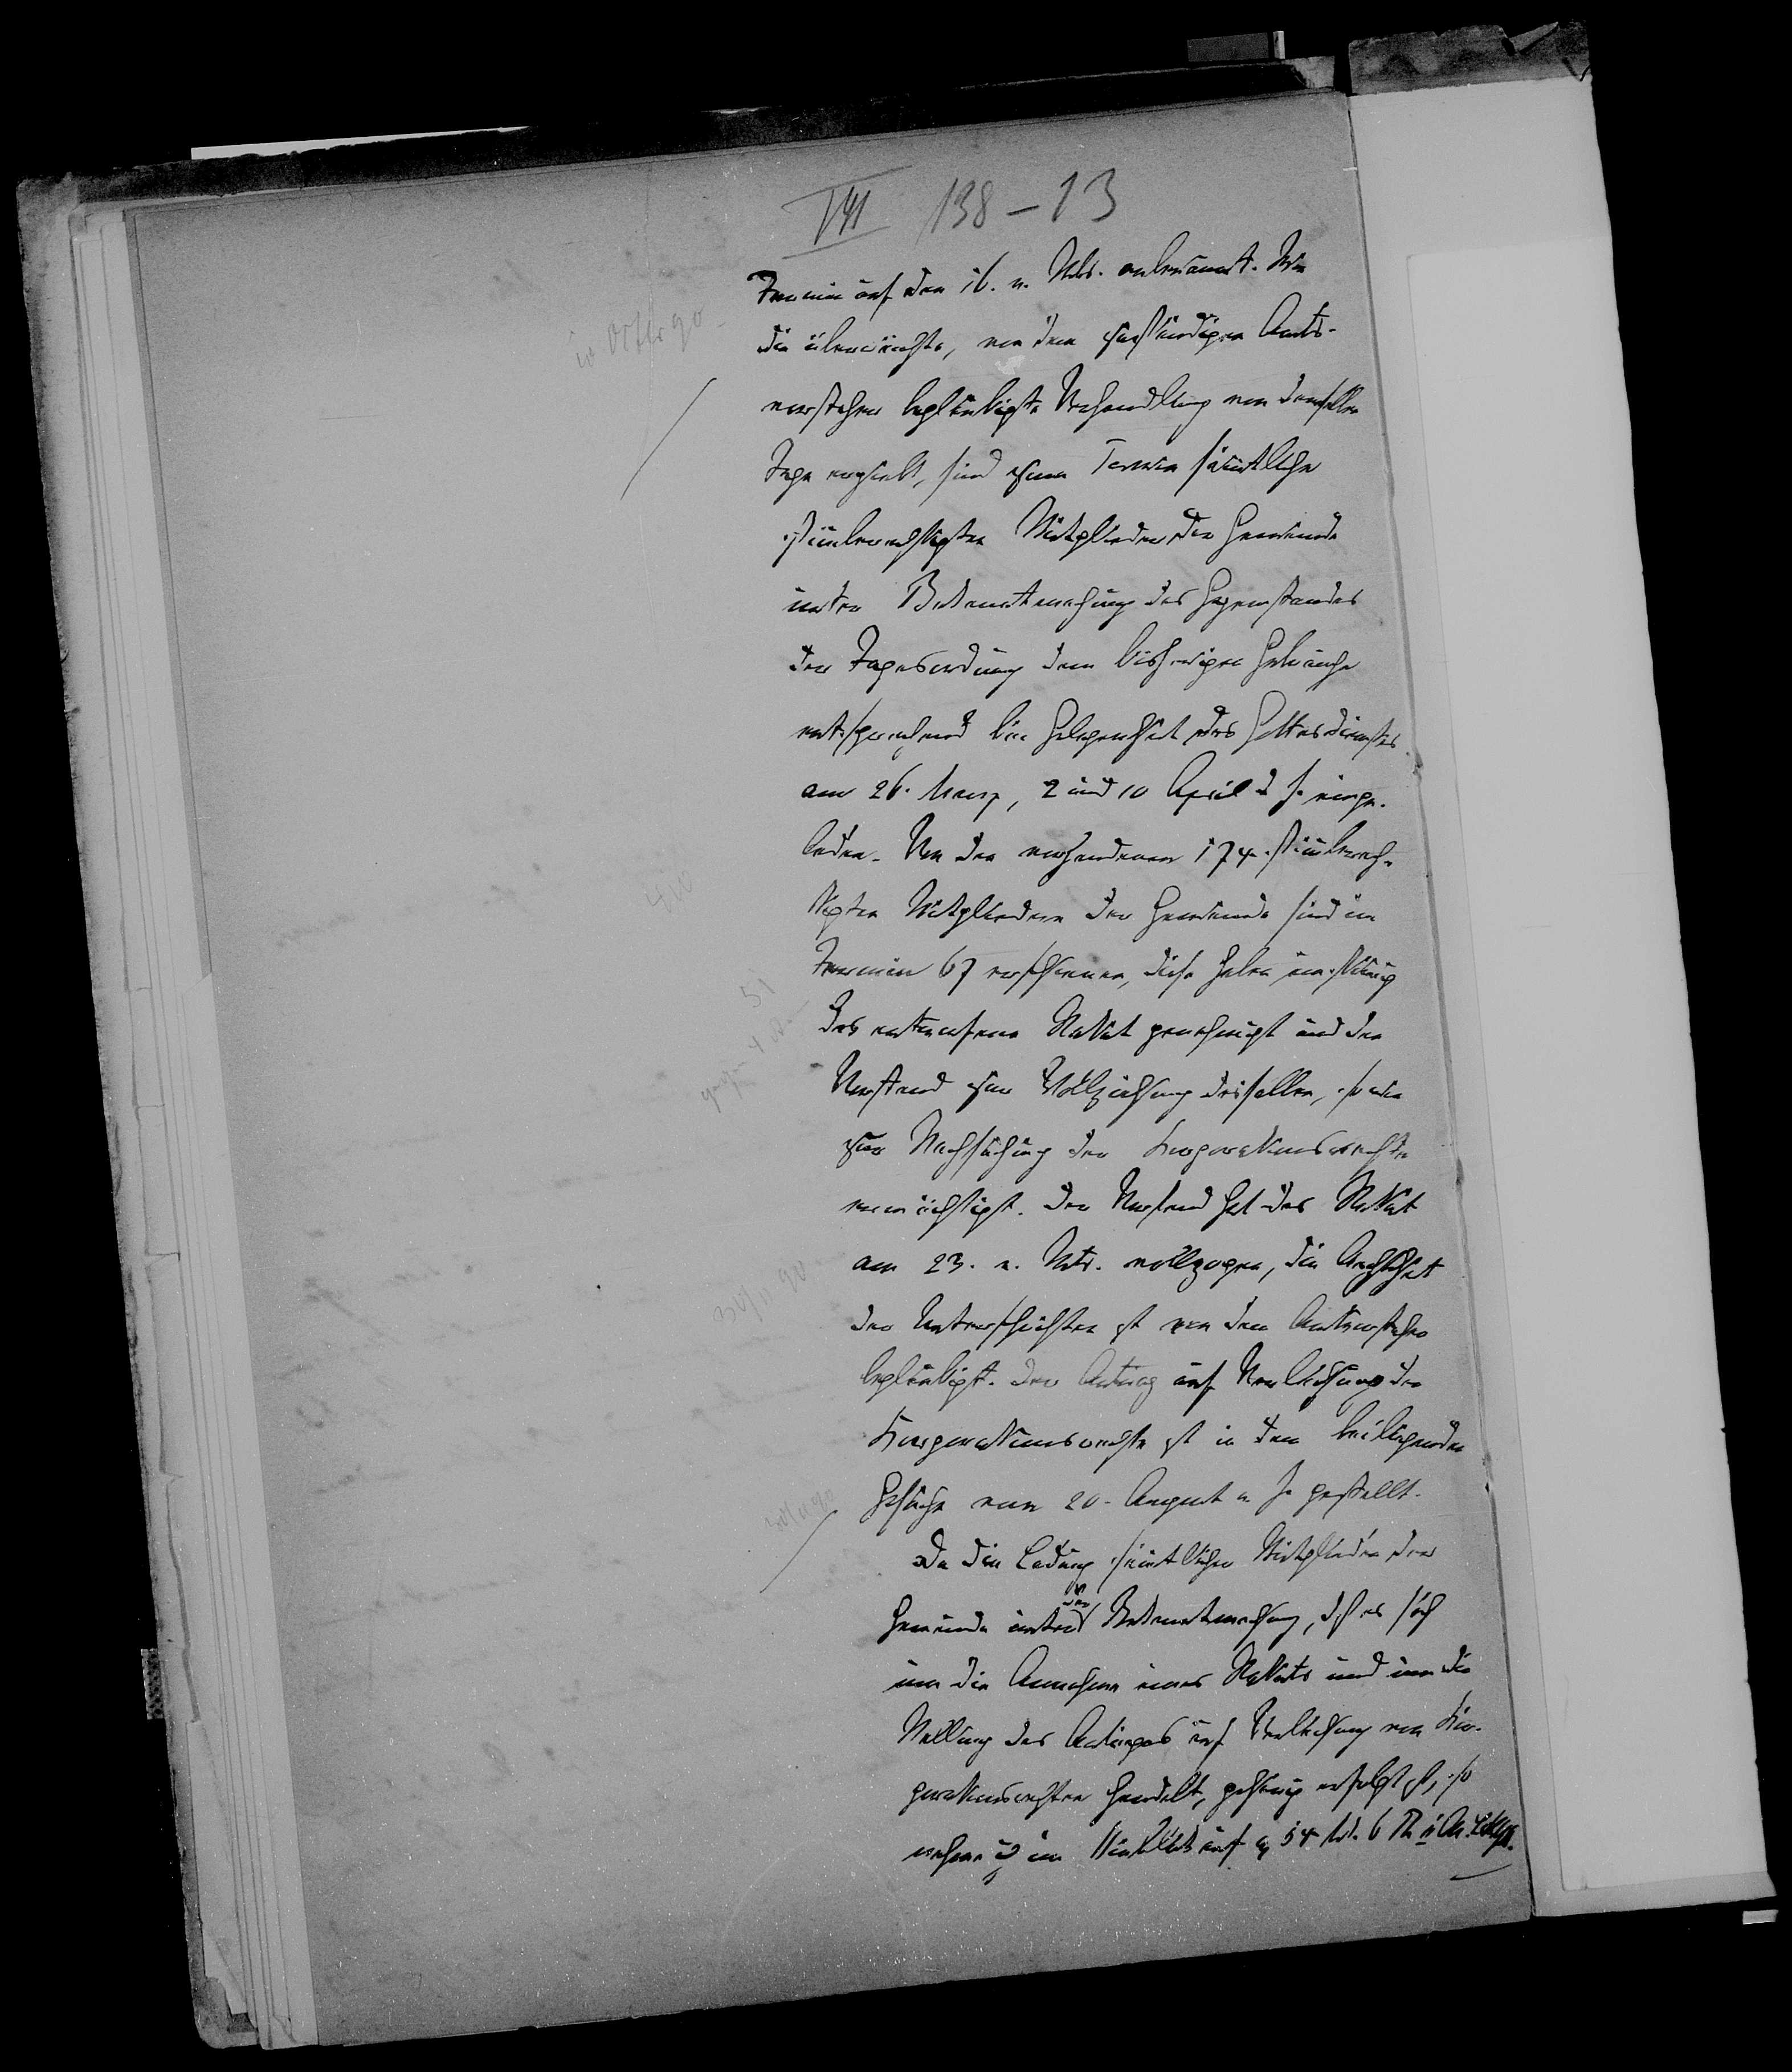 VII 138-13
Termin auf den 16. v. Mts. anberaumt. Wie
die überreichte, von dem zuständigen Amts-
vorsteher beglaubigte Verhandlung von demselben
Tage ergiebt, sind zum Termin sämtliche
stimberechtigten Mitglieder der Gemeinde
unter Bekanntmachung des Gegenstandes
der Tagesordnung dem bisherigen Gebrauche
entsprechend bei Gelegenheit des Gottesdienstes
am 26. März, 2 und 10 April d J. einge-
laden. Von den vorhandenen 174 stimberech-
tigten Mitgliedern der Gemeinde sind im
Termin 67 erschienen, diese haben einstimmig
das entworfene Statut genehmigt und den
Vorstand zur Vollziehung desselben, sowie
zur Nachsuchung der Korporationsrechte
ermächtigt. Der Vorstand hat das Statut
am 23. v. Mts. vollzogen, die Aechtheit
der Unterschriften ist von dem Amtsvorsteher
beglaubigt. Der Antrag auf Verleihung der
Korporationsrechte ist in dem beiliegenden
Gesuche vom 20. August v J. gestellt.
Da die Ladung sämtlicher Mitglieder der
Gemeinde unter der Bekanntmachung, daß es sich
um die Annahme eines Statuts und um die
Stellung des Antrages auf Verleihung von Kor-
porationsrechten handelt, gehörig erfolgt ist, so
nehme ich im Hinblick auf § 54 tit. 6 Th II